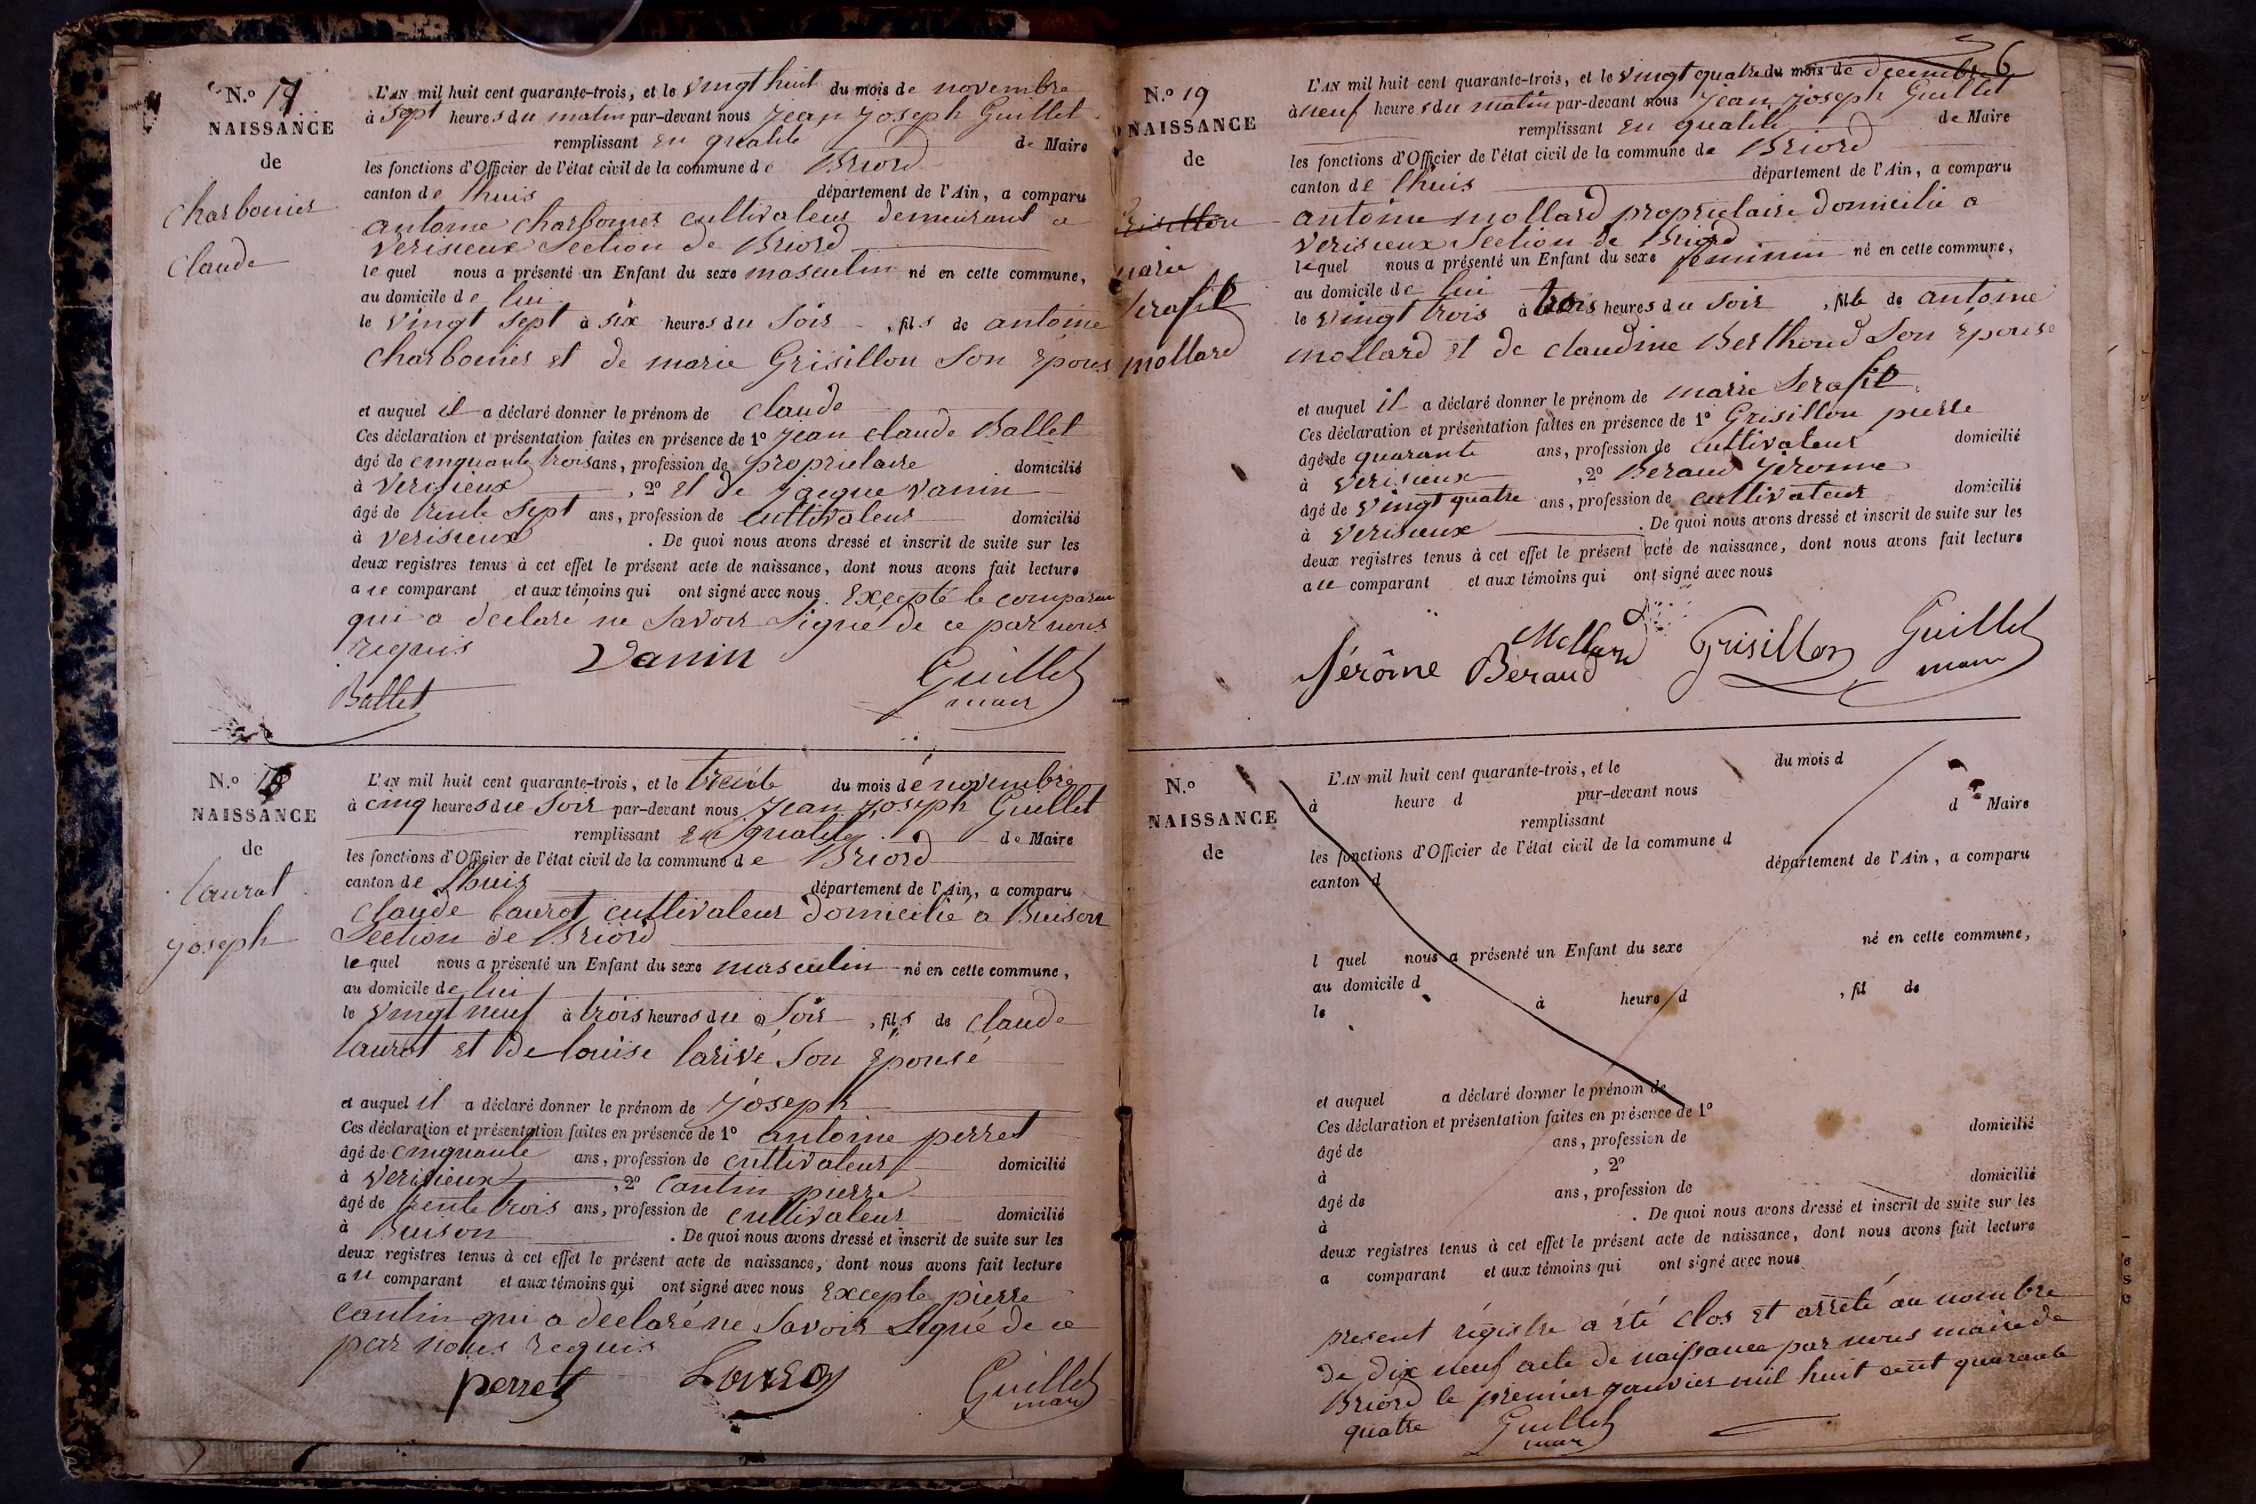 N.o 17
NAISSANCE
de
Charbonier
Claude
L'AN mil huit cent quarante-trois, et le vingt huit du mois de novembre
à sept heures du matin par-devant nous Jean Joseph Guillet
remplissant en qualité de Maire
les fonctions d'Officier de l'état civil de la commune de Briord
canton de lhuis département de l'Ain, a comparu
antoine charbonier cultivateur demeurant a
verisieux Section de Briord
lequel nous a présenté un Enfant du sexe masculin né en cette commune,
au domicile de lui
le vingt sept à six heures du soir, fils de antoine
charbonier et de marie Grisillon son épous
et auquel il a déclaré donner le prénom de claude
Ces déclaration et présentation faites en présence de 1o jean claude Ballet
âgé de cinquante trois ans, profession de propriétaire domicilié
à verisieux, 2o et de jacque vanin
âgé de trente sept ans, profession de cultivateur domicilié
à verisieux. De quoi nous avons dressé et inscrit de suite sur les
deux registres tenus à cet effet le présent acte de naissance, dont nous avons fait lecture
au comparant et aux témoins qui ont signé avec nous Excepté le comparan
qui a declaré ne savoir signé de ce par nous
requis
Vanin
Ballet
Guillet
maire
N.o 18
NAISSANCE
de
laurot
joseph
L'AN mil huit cent quarante-trois, et le trente du mois de novembre
à cinq heures du soir par-devant nous Jean Joseph Guillet
remplissant en qualité de Maire
les fonctions d'Officier de l'état civil de la commune de Briord
canton de lhuis département de l'Ain, a comparu
claude laurot cultivateur domicilié a Buison
Section de Briord
lequel nous a présenté un Enfant du sexe masculin né en cette commune,
au domicile de lui
le vingt neuf à trois heures du soir, fils de claude
laurot et de louise larivé son épouse
et auquel il a déclaré donner le prénom de joseph
Ces déclaration et présentation faites en présence de 1o antoine perret
âgé de cinquante ans, profession de cultivateur domicilié
à verisieux, 2o cantin pierre
âgé de trente trois ans, profession de cultivateur domicilié
à Buison. De quoi nous avons dressé et inscrit de suite sur les
deux registres tenus à cet effet le présent acte de naissance, dont nous avons fait lecture
au comparant et aux témoins qui ont signé avec nous Excepte pierre
cantin qui a declaré ne savoir signé de ce
par nous requis
perret
Guillet
maire
6
N.o 19
NAISSANCE
de
Grisillon
marie
Serafit
mollard
L'AN mil huit cent quarante-trois, et le vingt quatre du mois de decembre
à neuf heures du matin par-devant nous jean joseph Guillet
remplissant en qualité de Maire
les fonctions d'Officier de l'état civil de la commune de Briord
canton de lhuis département de l'Ain, a comparu
antoine mollard propriétaire domicilié a
verisieux Section de Briord
lequel nous a présenté un Enfant du sexe feminin né en cette commune,
au domicile de lui
le vingt trois à trois heures du soir, fille de antoine
mollard et de claudine Berthoud son épouse
et auquel il a déclaré donner le prénom de marie Serafit
Ces déclaration et présentation faites en présence de 1o Grisillon pierre
âgé de quarante ans, profession de cultivateur domicilié
à verisieux, 2o Beraud Jérome
âgé de vingt quatre ans, profession de cultivateur domicilié
à verisieux. De quoi nous avons dressé et inscrit de suite sur les
deux registres tenus à cet effet le présent acte de naissance, dont nous avons fait lecture
au comparant et aux témoins qui ont signé avec nous
Mollard
Jérôme Beraud
Grisillon
Guillet
maire
N.o
NAISSANCE
de
L'AN mil huit cent quarante-trois, et le du mois d
à heure d par-devant nous
remplissant d Maire
les fonctions d'Officier de l'état civil de la commune d
canton d département de l'Ain, a comparu
l quel nous a présenté un Enfant du sexe né en cette commune,
au domicile d
le à heure d, fil de
et auquel a déclaré donner le prénom de
Ces déclaration et présentation faites en présence de 1o
âgé de ans, profession de domicilié
à, 2o
âgé de ans, profession de domicilié
à. De quoi nous avons dressé et inscrit de suite sur les
deux registres tenus à cet effet le présent acte de naissance, dont nous avons fait lecture
a comparant et aux témoins qui ont signé avec nous
present régistre a été clos et arreté au nombre
de dix neuf acte de naissance par nous maire de
Briord le premier janvier mil huit cent quarante
quatre
Guillet
maire